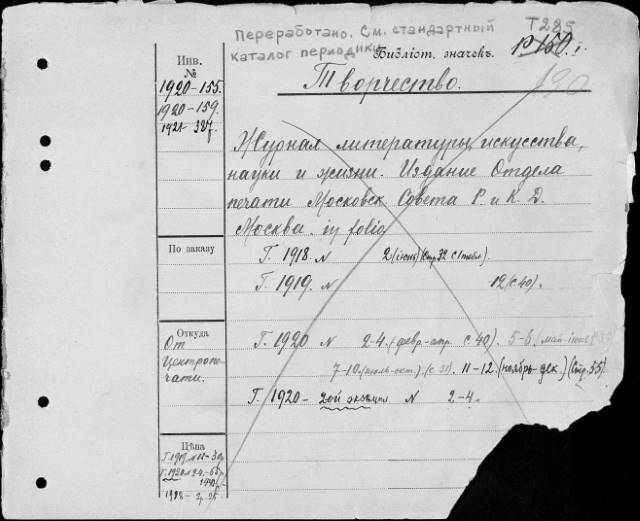 Переработано. См. стандартный
каталог периодики
Т285
Библіот. значекъ.
Р 150
190
Инв.
№
1920-155.
1920-159.
1921-327.
Творчество.
Журнал литературы, искусства,
науки и жизни. Издание Отдела
печати Московск. Совета Р. и К. Д.
Москва. in folio
По заказу
Г. 1918. N 2 (июнь) (стр. 32
Г. 1919. N 12 (с 40).
Откуда
От
Центропе-
чати.
Г. 1920 N 2-4. (февр.-апр. с. 40). 5-6. (май-июнь)
7-10. (июль-окт.). (с. 11-12. (ноябрь-дек.) (Стр. 55).
Г. 1920 - 2ой экземпл. N 2-4.
Цѣна